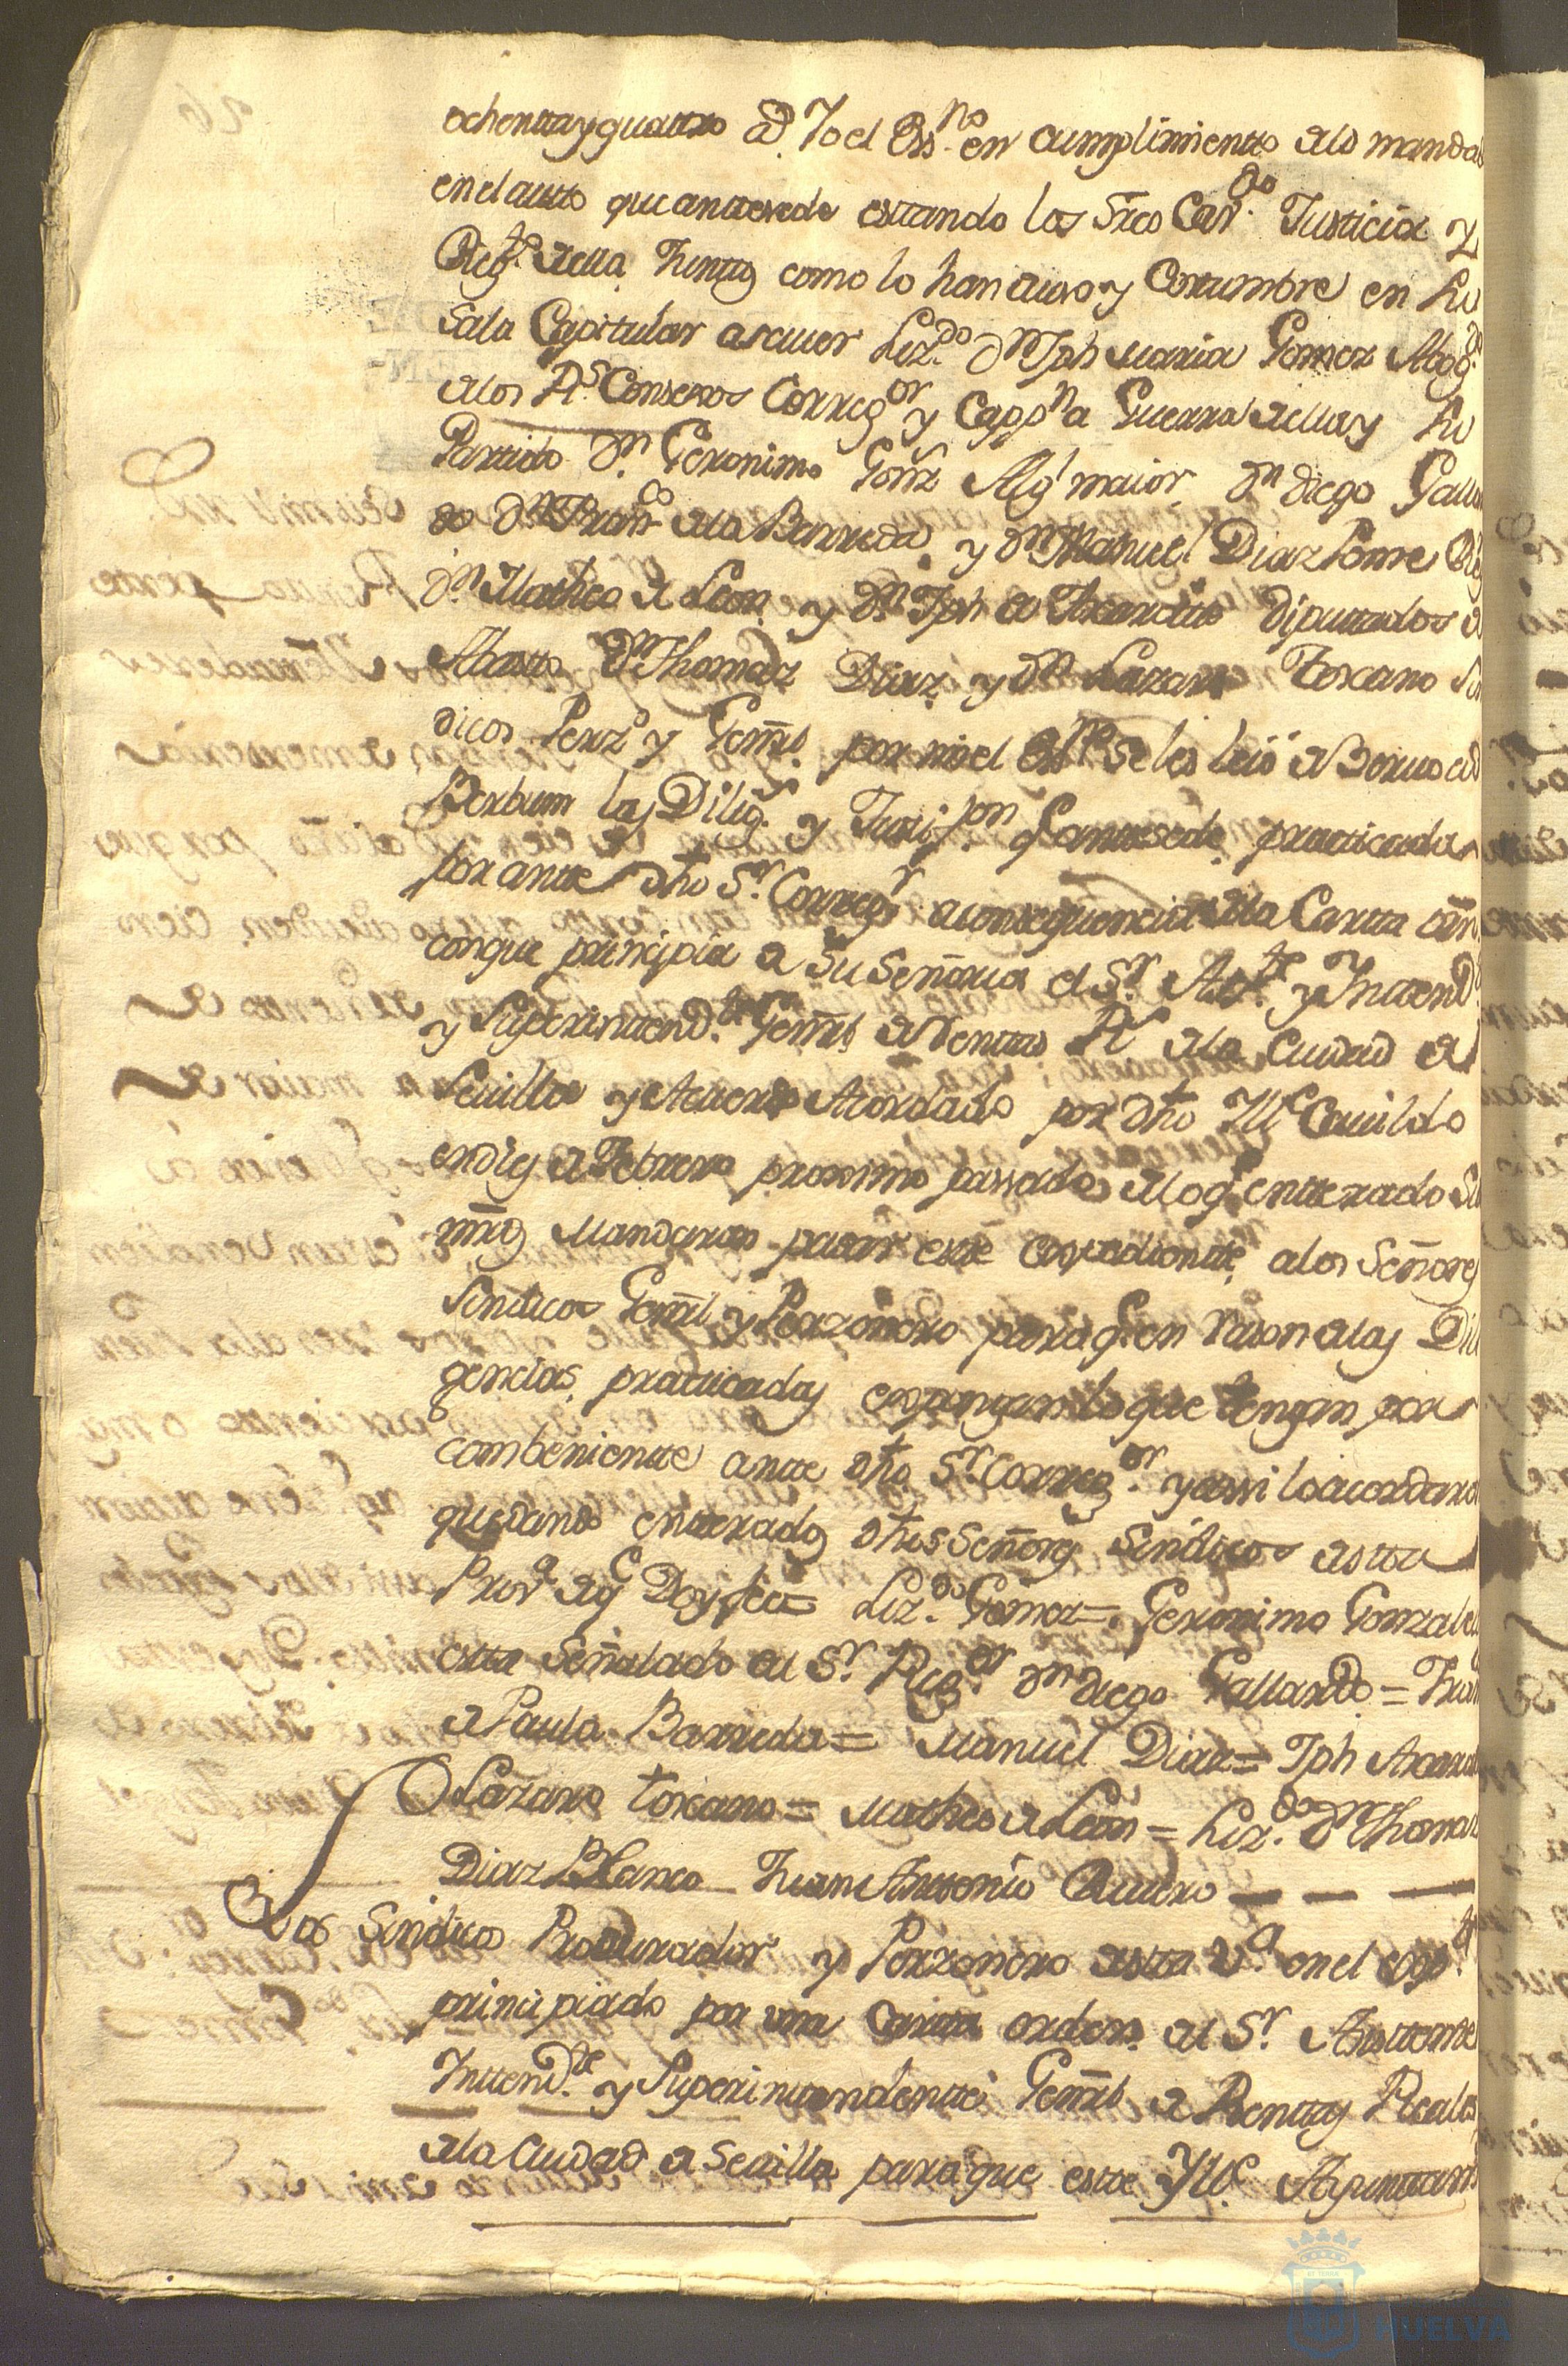 ochentaÿquatro ad. Yo el Ess.no en cumplimiento alo manda
en el auto que antesede estando los Sres Cav.do Justicia y
Reg.to della Juntos como lo han auso y Costumbre en su
Sala Capitular asauer Liz.do Dn Jph Maria Gomez Abog.do
alos Rs Consexos Correg.or y Cappn a Guerra della y su
Partido Dn Geronimo Gonz Alg.l maior Dn diego Galla
do Dn Fran.co de la Barreda y Dn Manuel Diaz Ponze Re
Dn Matheo de Leon y Dn Jph de diputados de
Abasto Dn Thomaz Diaz y Dn Lazaro Toscano Sin
dicos Perz.o y Genrl por mi el Ess.no se les leió de Vorvo ad
Verbum las Dilig.s y q.e antesede practicadas
por ante dho Sr Correg.r aconsequencia dela Carta orn
conque principia de Su Señoria el Sr Asst.te y Yntend.te
y Superintend.te Genrl de Rentas Rs de la Ciudad de
Sevilla y Acuerdo Acordado por dho Ill.e Cavildo
en dies de Febrero proximo passado de lo q.e enterado Su
mrds Mandaron pasar este expediente a los Señores
Sindicos Genrl y Perzonero para q.e en rason de las Dili
gencias practicadas expongan lo que tengan por
combeniente ante dho Sr Correg.or y assi lo acordaron
quedando enterados dhos Señores Sindicos de esta
Prov.a de q.e Doy fee = Liz.do Gomez = Geronimo Gonzales
esta Señalado del Sr Reg.or Dn diego Gallardo = Fran
de Paula Barreda = Manuel Diaz = Jph
Lazaro toscano = Matheo de Leon = Liz.do Dn Thomas
Diaz Blanco = Juan Antonio Quintero — — —
Los Sindicos Procurador y Perzonero desta V.a en el exp.te
principiado por una Carta orden del Sr Assitente
Yntend.te y Superintendente Genrl de Rentas Reales
de la Ciudad de Sevilla para que este Yll.e Ayuntam
HUELVA